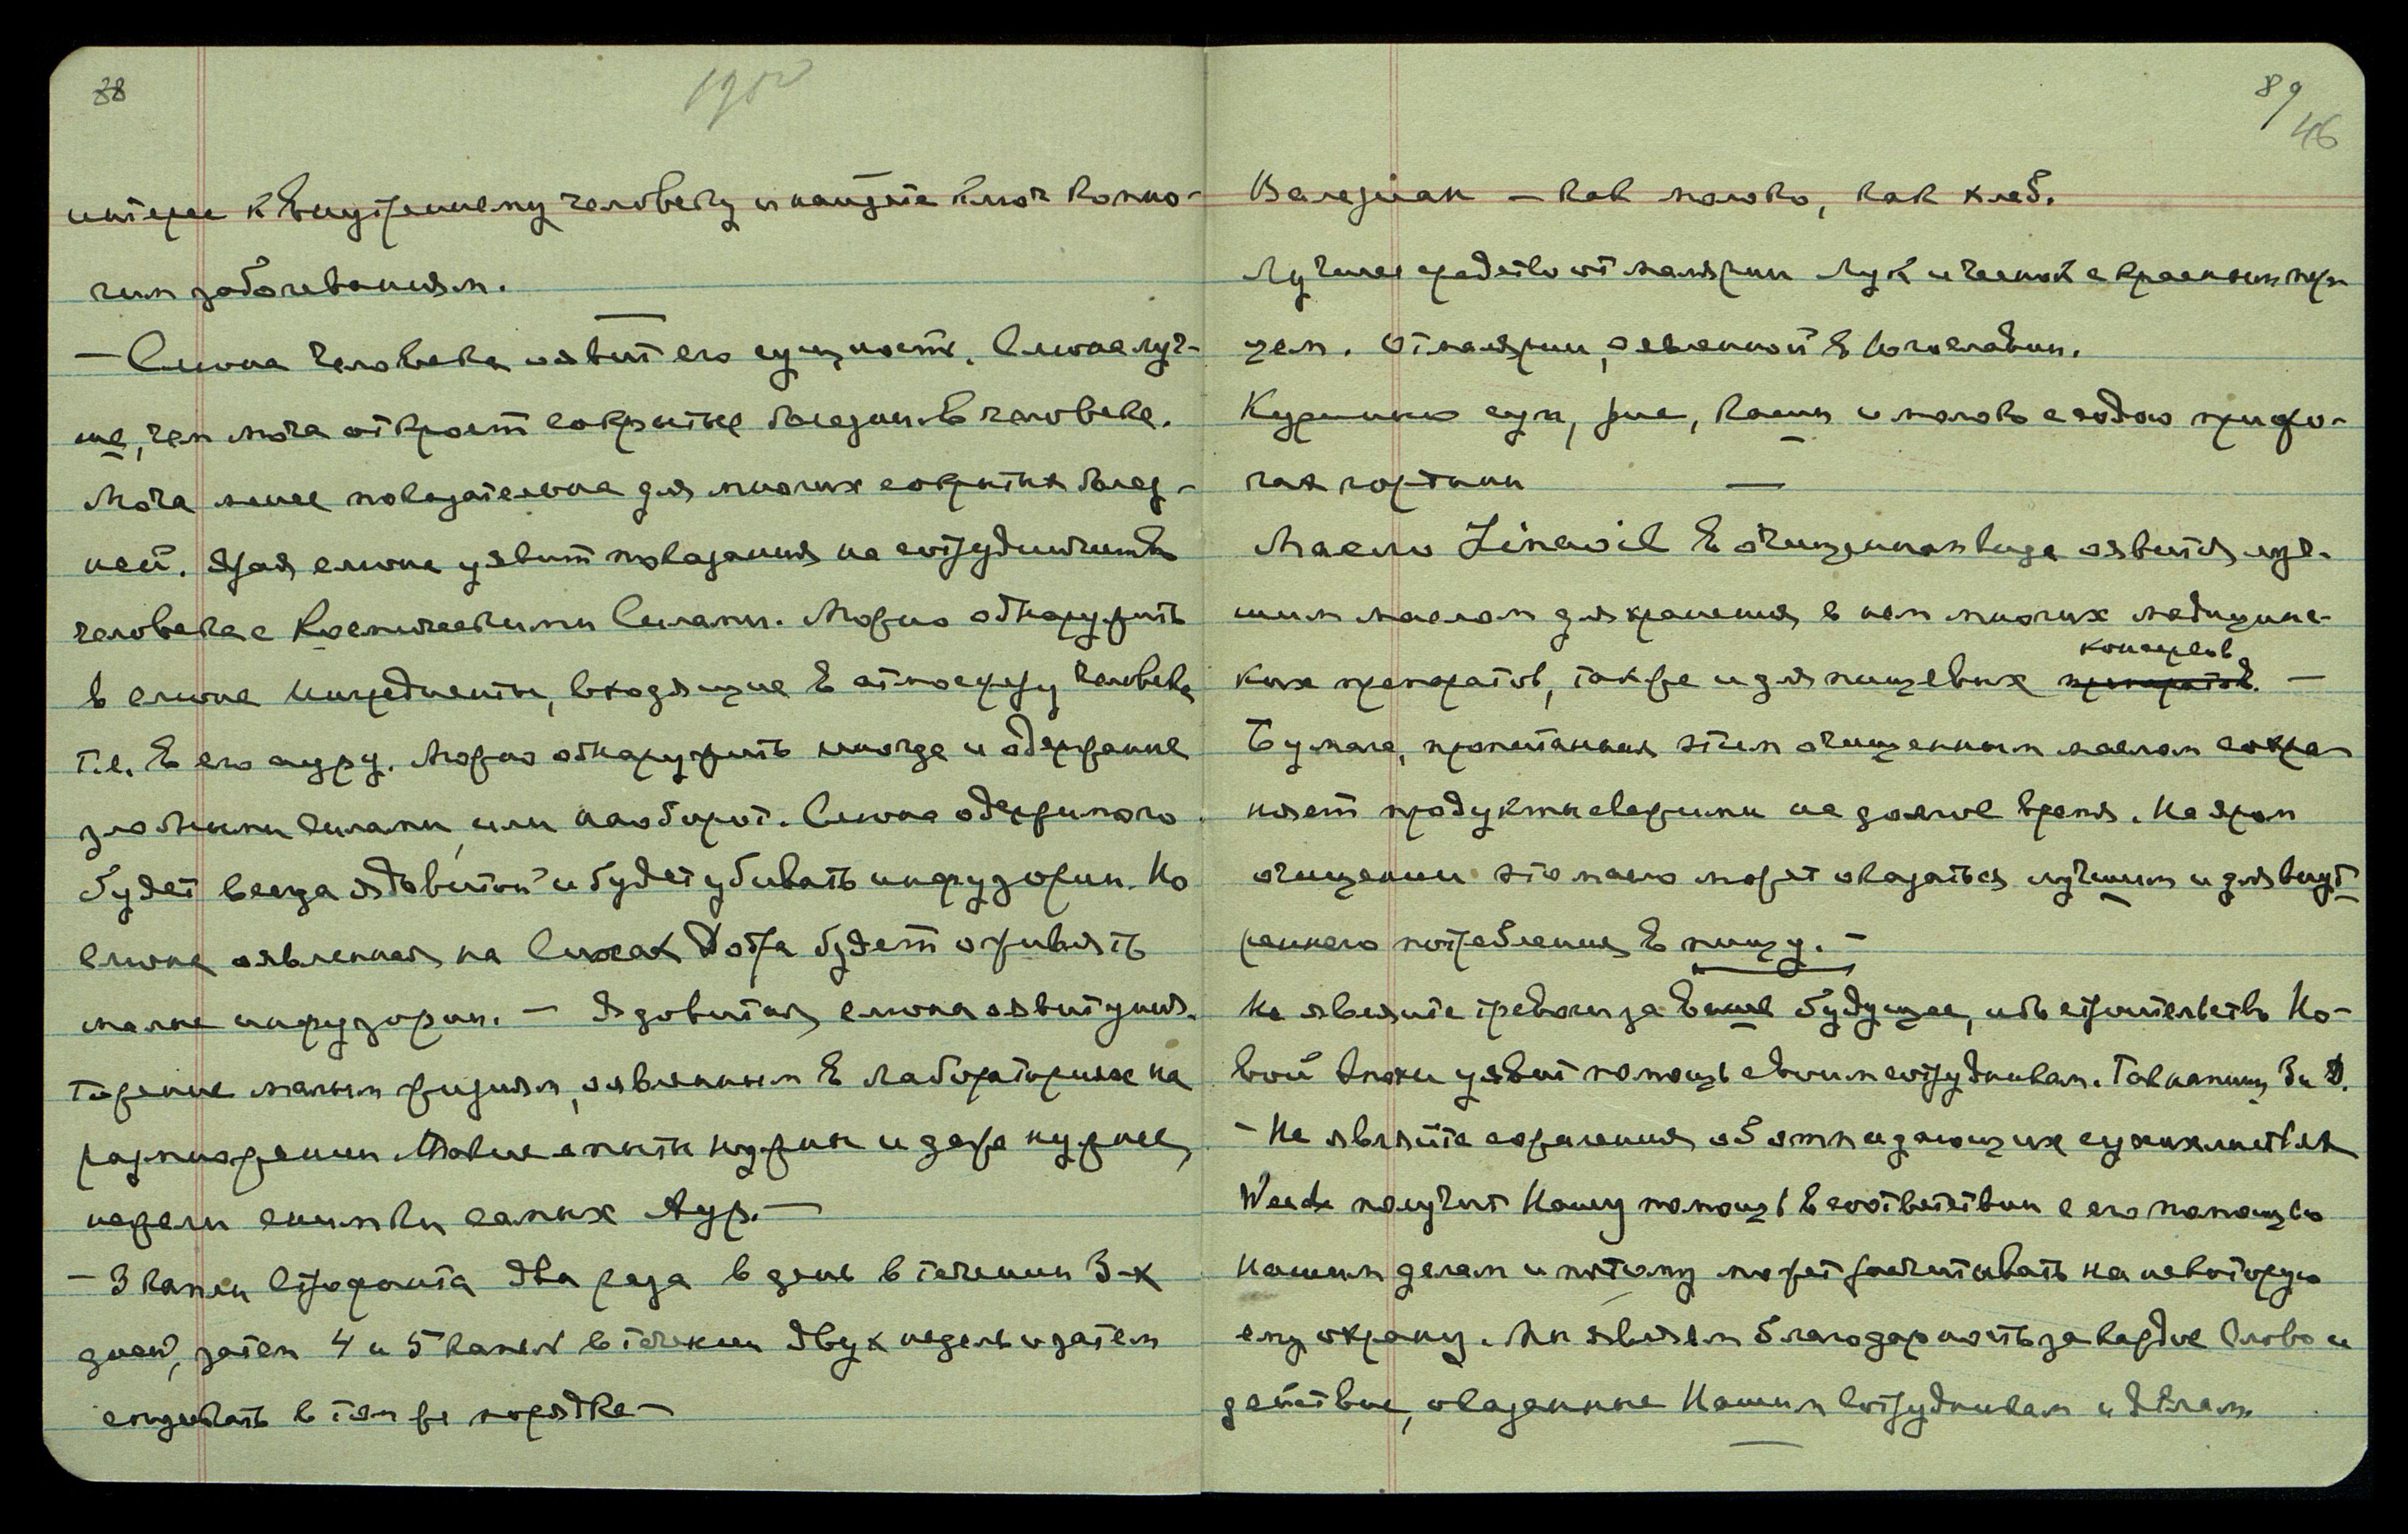 88
1950
интерес к внутреннему человеку и найдете ключ ко мно-
гим заболеваниям.
— Слюна человека оявит его сущность. Слюна луч-
ше, чем моча откроет сокрытые болезни в человеке.
Моча менее показательна для многих сокрытых болез-
ней. Ярая слюна уявит показания на сотрудничество
человека с Космическими Силами. Можно обнаружить
в слюне ингредиенты, входящие в атмосферу человека,
т.е. в его ауру. Можно обнаружить иногда и одержание
злобными силами, или наоборот. Слюна одержимого
будет всегда ядовитой и будет убивать инфузории. Но
слюна оявленная на Силах Добра будет оживлять
малые инфузории. — Ядовитая слюна оявит унич-
тожение малым жизням, оявленным в лабораториях на
размножении. Такие опыты нужны и даже нужнее,
нежели снимки самых Аур. —
— 3 капли Строфанта два раза в день в течении 3-х
дней, затем 4 и 5 капель в течении двух недель и затем
спускать в том же порядке —
89
46
Валериан — как молоко, как хлеб.
Лучшее средство от малярии лук и чеснок с красным пер-
цем. От малярии, оявленной в Югославии.
Куриный суп, рис, каши и молоко с содою при ожо-
гах гортани
Масло Linaoil в очищенном виде оявится луч-
шим маслом для хранения в нем многих медицинс-
консервов
ких препаратов, также и для пищевых препаратов. —
Бумага, пропитанная этим очищенным маслом сохра-
няет продукты свежими на долгое время. На яром
очищении это масло может оказаться лучшим и для внут-
реннего потребления в пищу. —
Не являйте тревоги за ваше будущее, ибо строительство Но-
вой Эпохи уявит помощь своим сотрудникам. Так напиши З и Д.
— Не являйте сожаления об отпадающих сухих листьях
Weede получит Нашу помощь в соответствии с его помощью
нашим делам и потому может рассчитывать на некоторую
ему охрану. Мы являем благодарность за каждое Слово и
действие, оказанные Нашим Сотрудникам и делам.